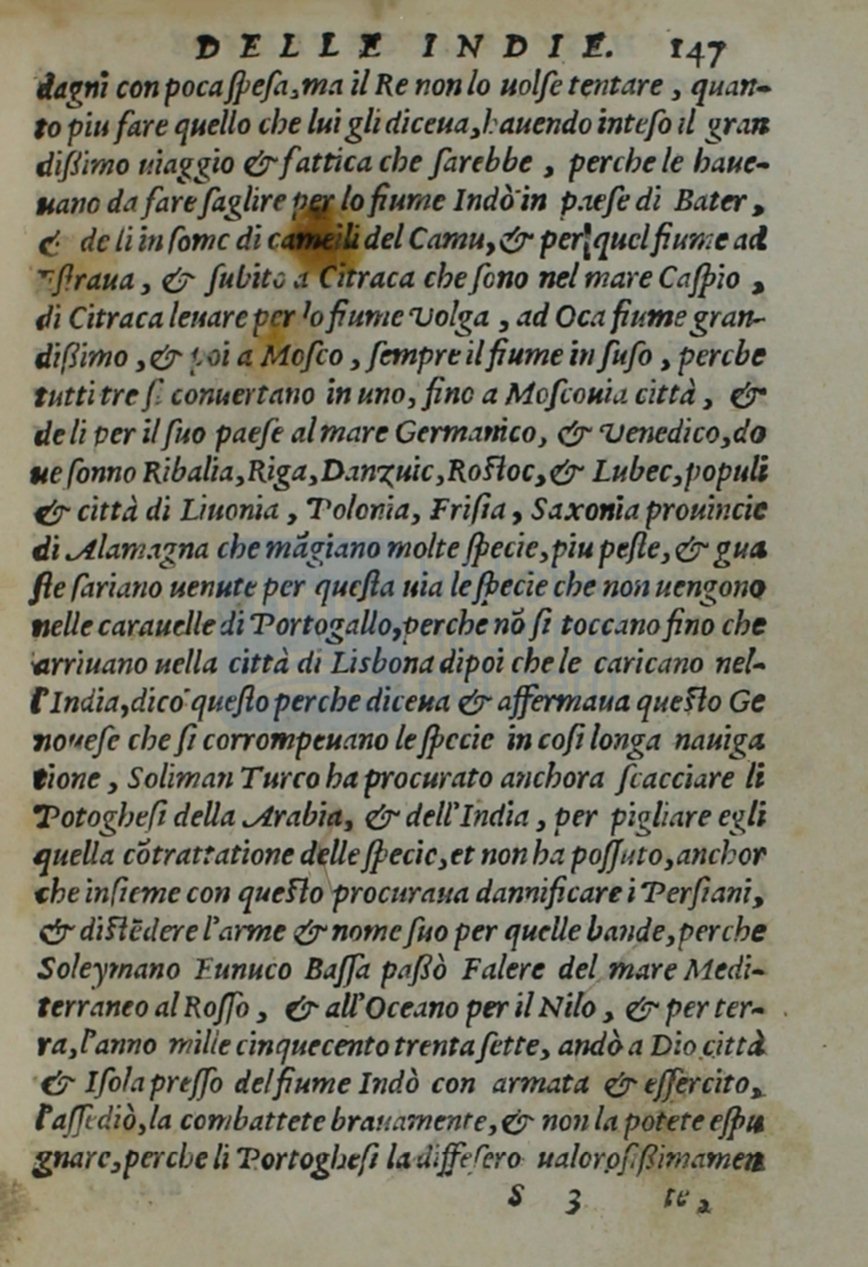 DELLE INDIE. 147
dagni con poca ſpeſa, ma il Re non lo uolſe tentare, quan-
to piu fare quello che lui gli diceua, hauendo inteſo il gran
dißimo uiaggio & fattica che ſarebbe, perche le haue-
uano da fare ſaglire per lo fiume Indò in paeſe di Bater,
& de li in ſome di cameili del Camu, & per quel fiume ad
ſtraua, & ſubito a Citraca che ſono nel mare Caſpio,
di Citraca leuare per lo fiume Volga, ad Oca fiume gran-
dißimo, & poi a Moſco, ſempre il fiume in ſuſo, perche
tutti tre ſi conuertano in uno, fino a Moſcouia città, &
de li per il ſuo paeſe al mare Germanico, & Venedico, do
ue ſonno Ribalia, Riga, Danzuic, Roſtoc, & Lubec, populi
& città di Liuonia, Polonia, Friſia, Saxonia prouincie
di Alamagna che mãgiano molte ſpecie, piu peſte, & gua
ſte ſariano uenute per queſta uia le ſpecie che non uengono
nelle carauelle di Portogallo, perche nõ ſi toccano fino che
arriuano uella città di Lisbona dipoi che le caricano nel-
l'India, dico queſto perche diceua & affermaua queſto Ge
noueſe che ſi corrompeuano le ſpecie in coſi longa nauiga
tione, Soliman Turco ha procurato anchora ſcacciare li
Potogheſi della Arabia, & dell'India, per pigliare egli
quella cõtrattatione delle ſpecie, et non ha poſſuto, anchor
che inſieme con queſto procuraua dannificare i Perſiani,
& diſtẽdere l'arme & nome ſuo per quelle bande, perche
Soleymano Eunuco Baſſa paßò Falere del mare Medi-
terraneo al Roſſo, & all'Oceano per il Nilo, & per ter-
ra, l'anno mille cinquecento trenta ſette, andò a Dio città
& Iſola preſſo del fiume Indò con armata & eſſercito,
l'aſſediò, la combattete brauamente, & non la potete eſpu
gnare, perche li Portogheſi la diffeſero ualoroſißimamen
S 3 te,